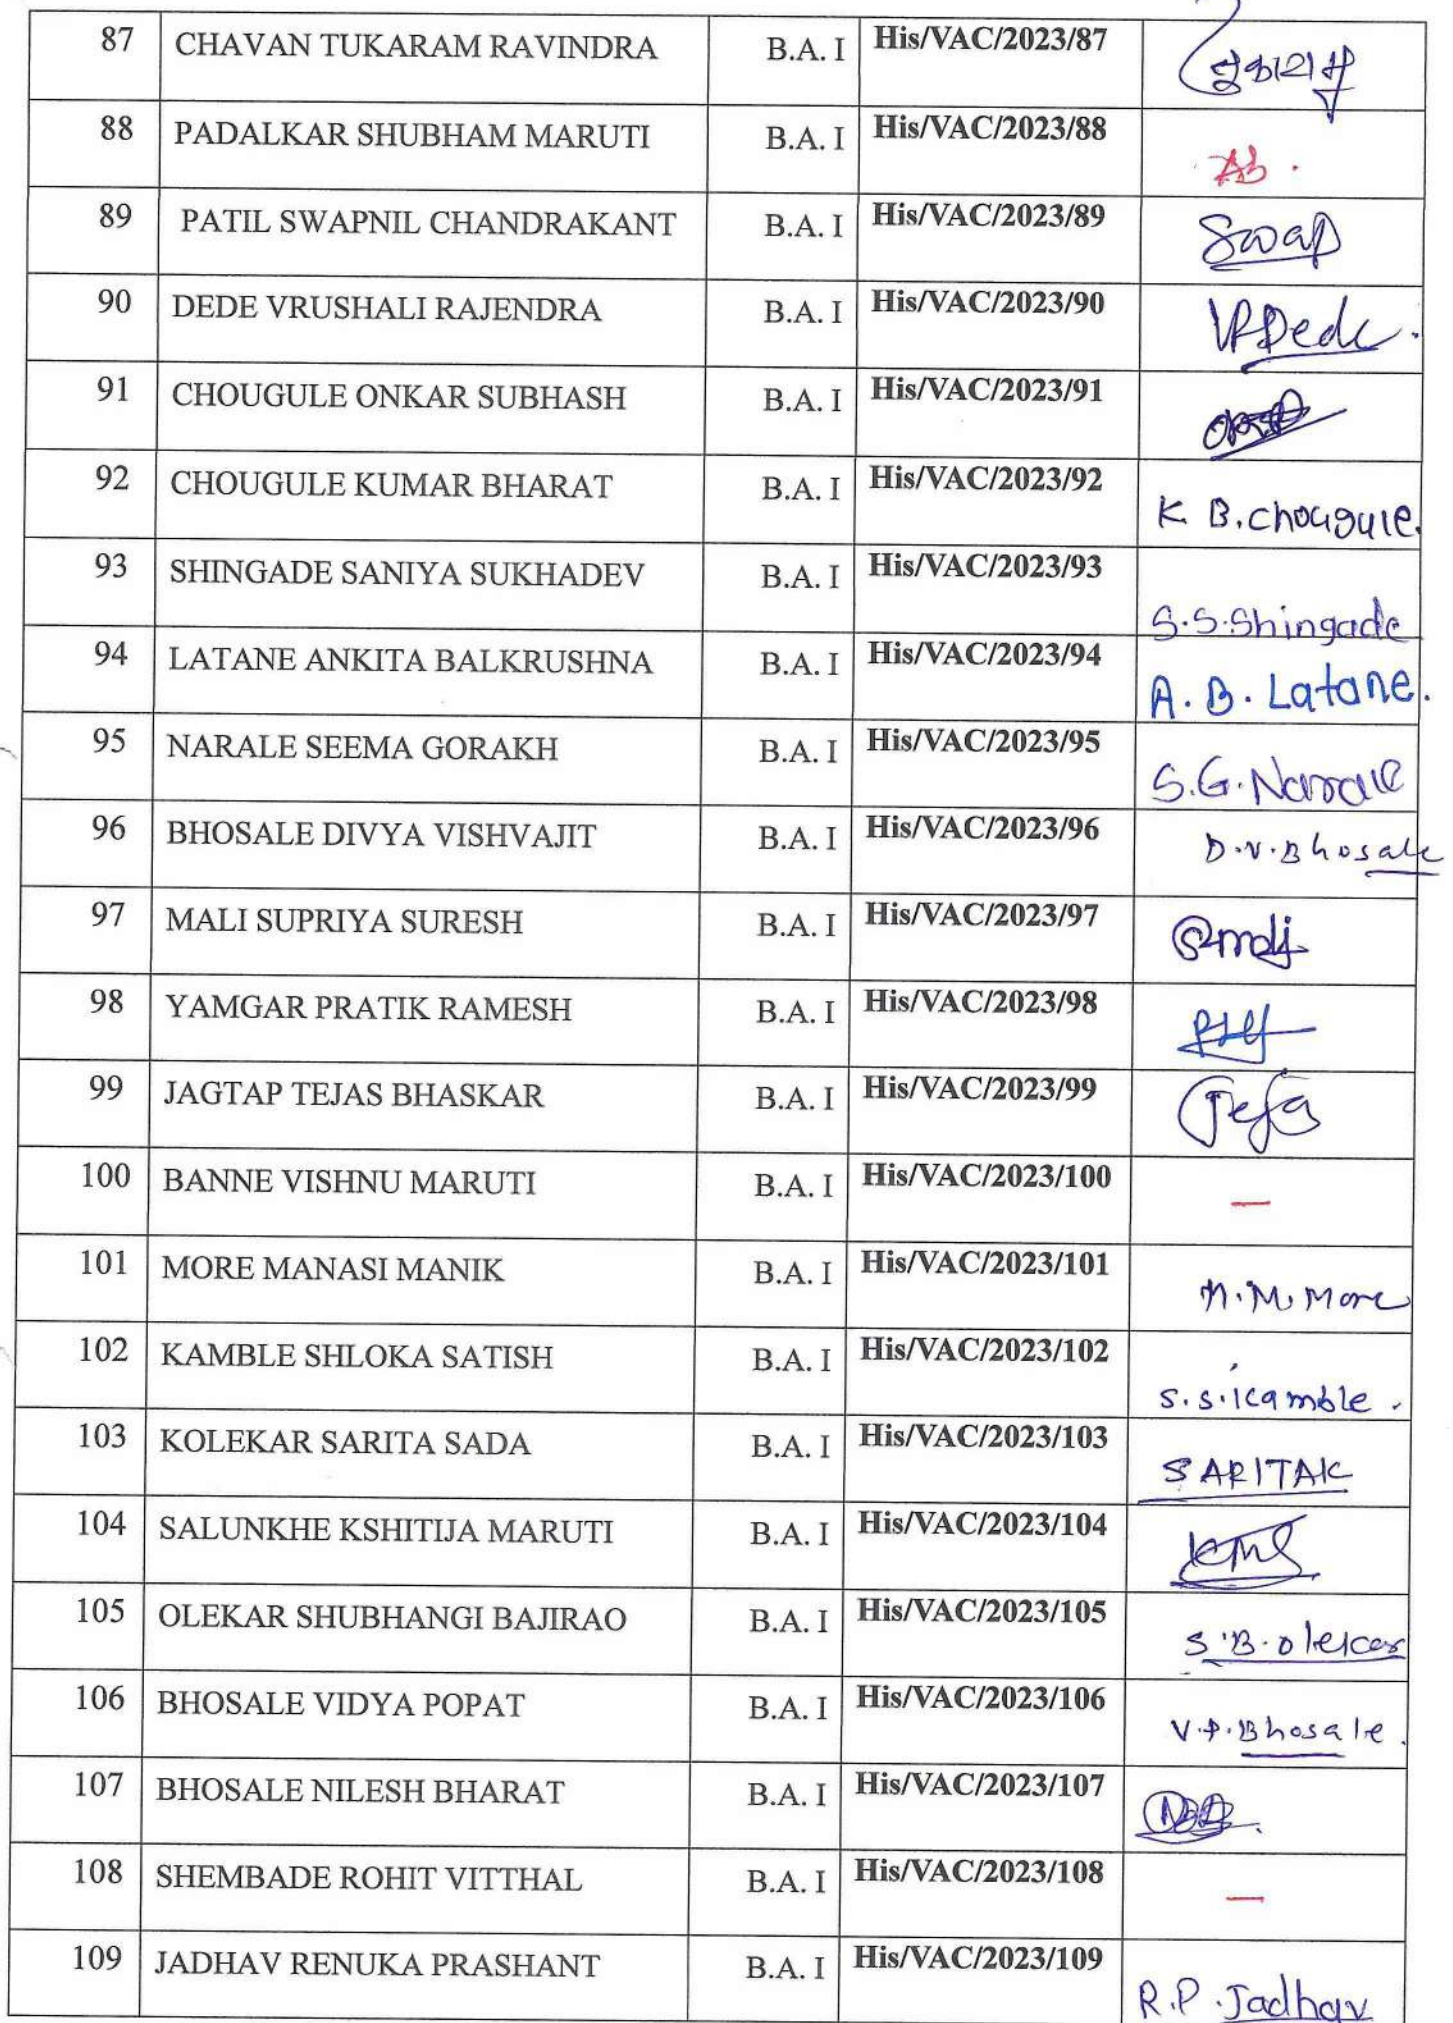 87 CHAVAN TUKARAM RAVINDRA B.A. I His/VAC/2023/87 तुकाराम
88 PADALKAR SHUBHAM MARUTI B.A. I His/VAC/2023/88 Ab.
89 PATIL SWAPNIL CHANDRAKANT B.A. I His/VAC/2023/89 Swap
90 DEDE VRUSHALI RAJENDRA B.A. I His/VAC/2023/90 VRDede.
91 CHOUGULE ONKAR SUBHASH B.A. I His/VAC/2023/91
92 CHOUGULE KUMAR BHARAT B.A. I His/VAC/2023/92 K. B. chougule.
93 SHINGADE SANIYA SUKHADEV B.A. I His/VAC/2023/93 S.S.Shingade
94 LATANE ANKITA BALKRUSHNA B.A. I His/VAC/2023/94 A. B. Latane.
95 NARALE SEEMA GORAKH B.A. I His/VAC/2023/95 S.G. Narale
96 BHOSALE DIVYA VISHVAJIT B.A. I His/VAC/2023/96 D.V.Bhosale
97 MALI SUPRIYA SURESH B.A. I His/VAC/2023/97
98 YAMGAR PRATIK RAMESH B.A. I His/VAC/2023/98
99 JAGTAP TEJAS BHASKAR B.A. I His/VAC/2023/99 Tejas
100 BANNE VISHNU MARUTI B.A. I His/VAC/2023/100 —
101 MORE MANASI MANIK B.A. I His/VAC/2023/101 M.M. More
102 KAMBLE SHLOKA SATISH B.A. I His/VAC/2023/102 S.S.Kamble.
103 KOLEKAR SARITA SADA B.A. I His/VAC/2023/103 SARITAK
104 SALUNKHE KSHITIJA MARUTI B.A. I His/VAC/2023/104 KMS
105 OLEKAR SHUBHANGI BAJIRAO B.A. I His/VAC/2023/105 S.B.olekar
106 BHOSALE VIDYA POPAT B.A. I His/VAC/2023/106 V.P.Bhosale.
107 BHOSALE NILESH BHARAT B.A. I His/VAC/2023/107
108 SHEMBADE ROHIT VITTHAL B.A. I His/VAC/2023/108 —
109 JADHAV RENUKA PRASHANT B.A. I His/VAC/2023/109 R.P.Jadhav